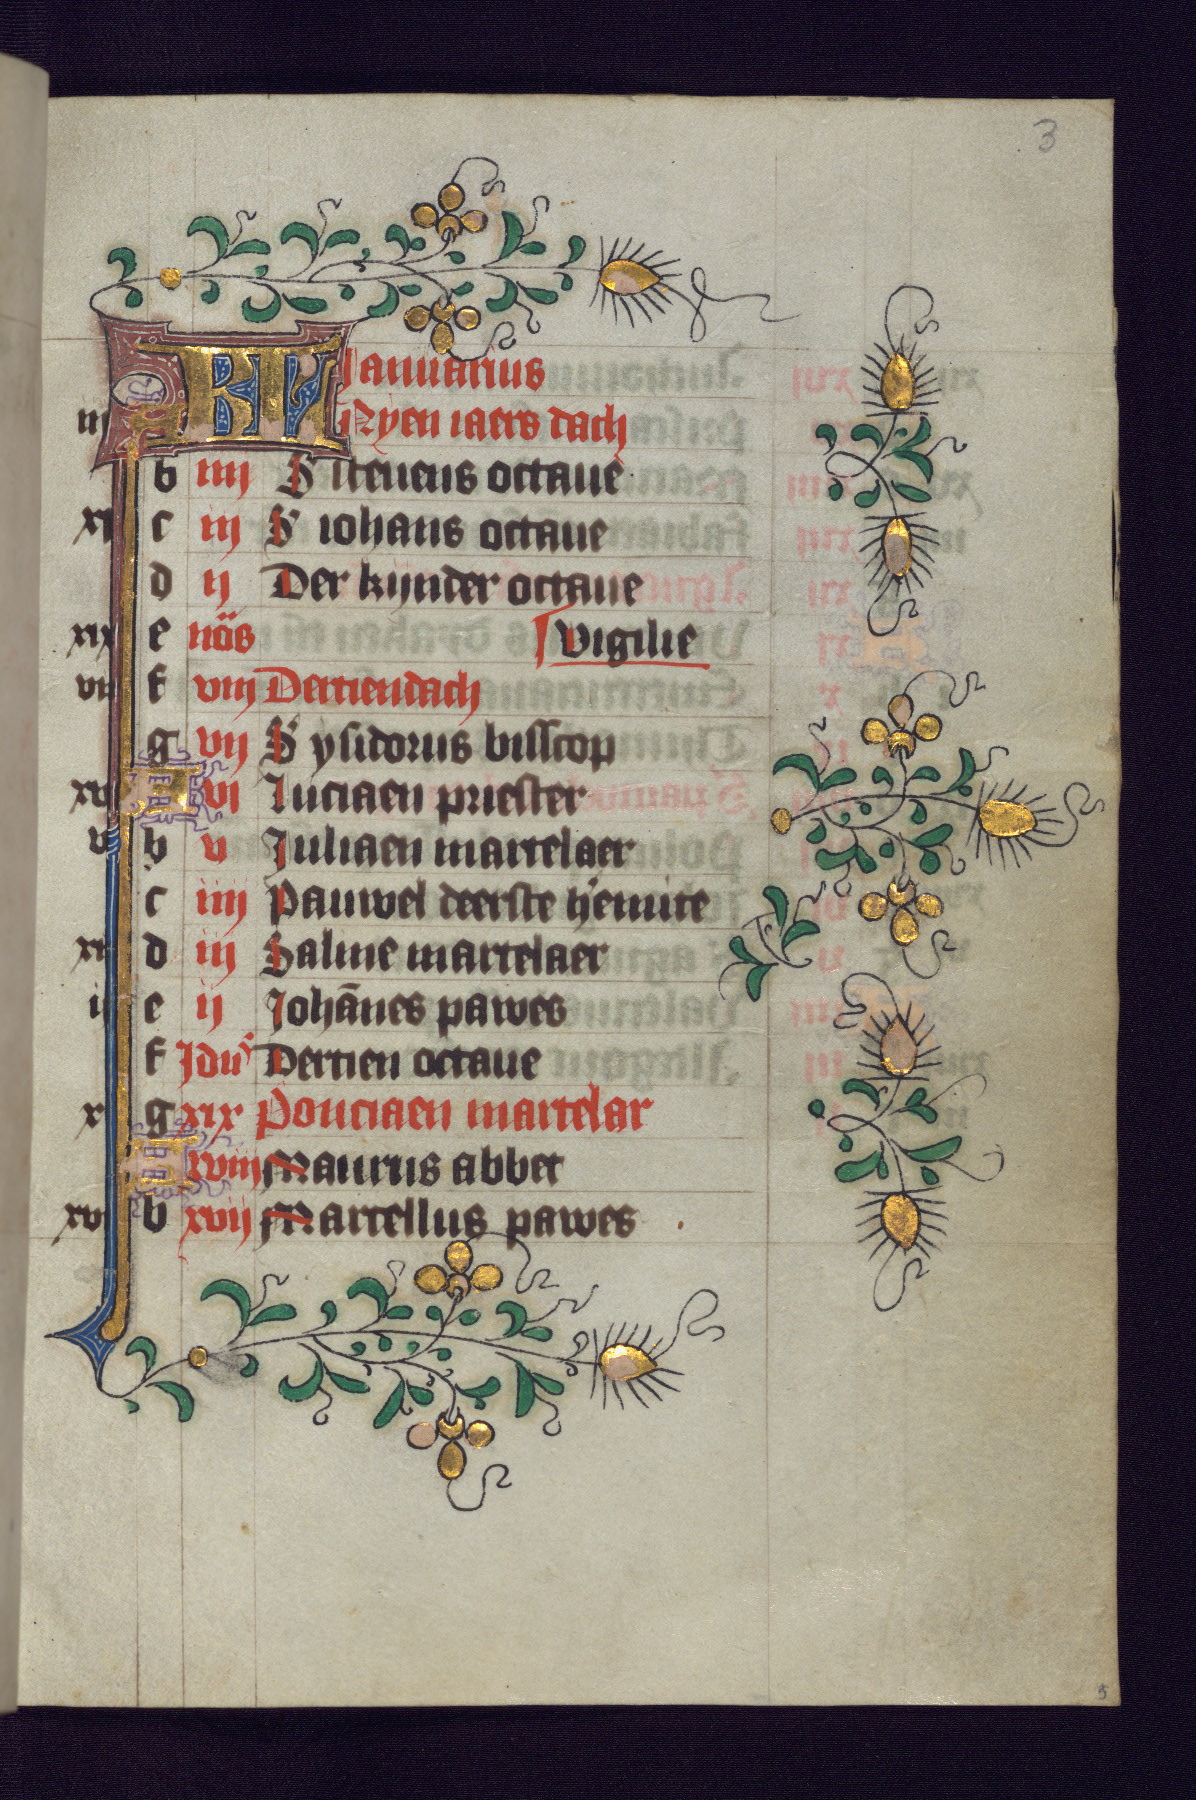 3
KL Januarius
iii Nyen iaers dach
b iiii S steuens octaue
xi c iii S iohans octaue
d ii Der kijnder octaue
xix e nōs vigilie
viii f viii Dertiendach
g vii S ysidorus bisscop
xvi A vi Luciaen priester
v b v Juliaen martelaer
c iiii Pauwel deerste h'emite
xiii d iii Saluie martelaer
ii e ii Johānes pawes
f Idus Dertien octaue
x g xix Ponciaen martelar
A xviii Maurus abbet
xviii b xvii Marcellus pawes